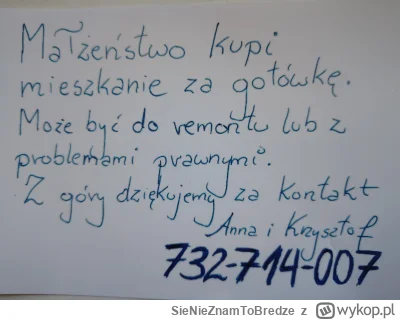 Małżeństwo kupi
mieszkanie za gotówkę.
Może być do remontu lub z
problemami prawnymi.
Z góry dziękujemy za kontakt
Anna i Krzysztof
732-714-007
SieNieZnamToBredze z wykop.pl